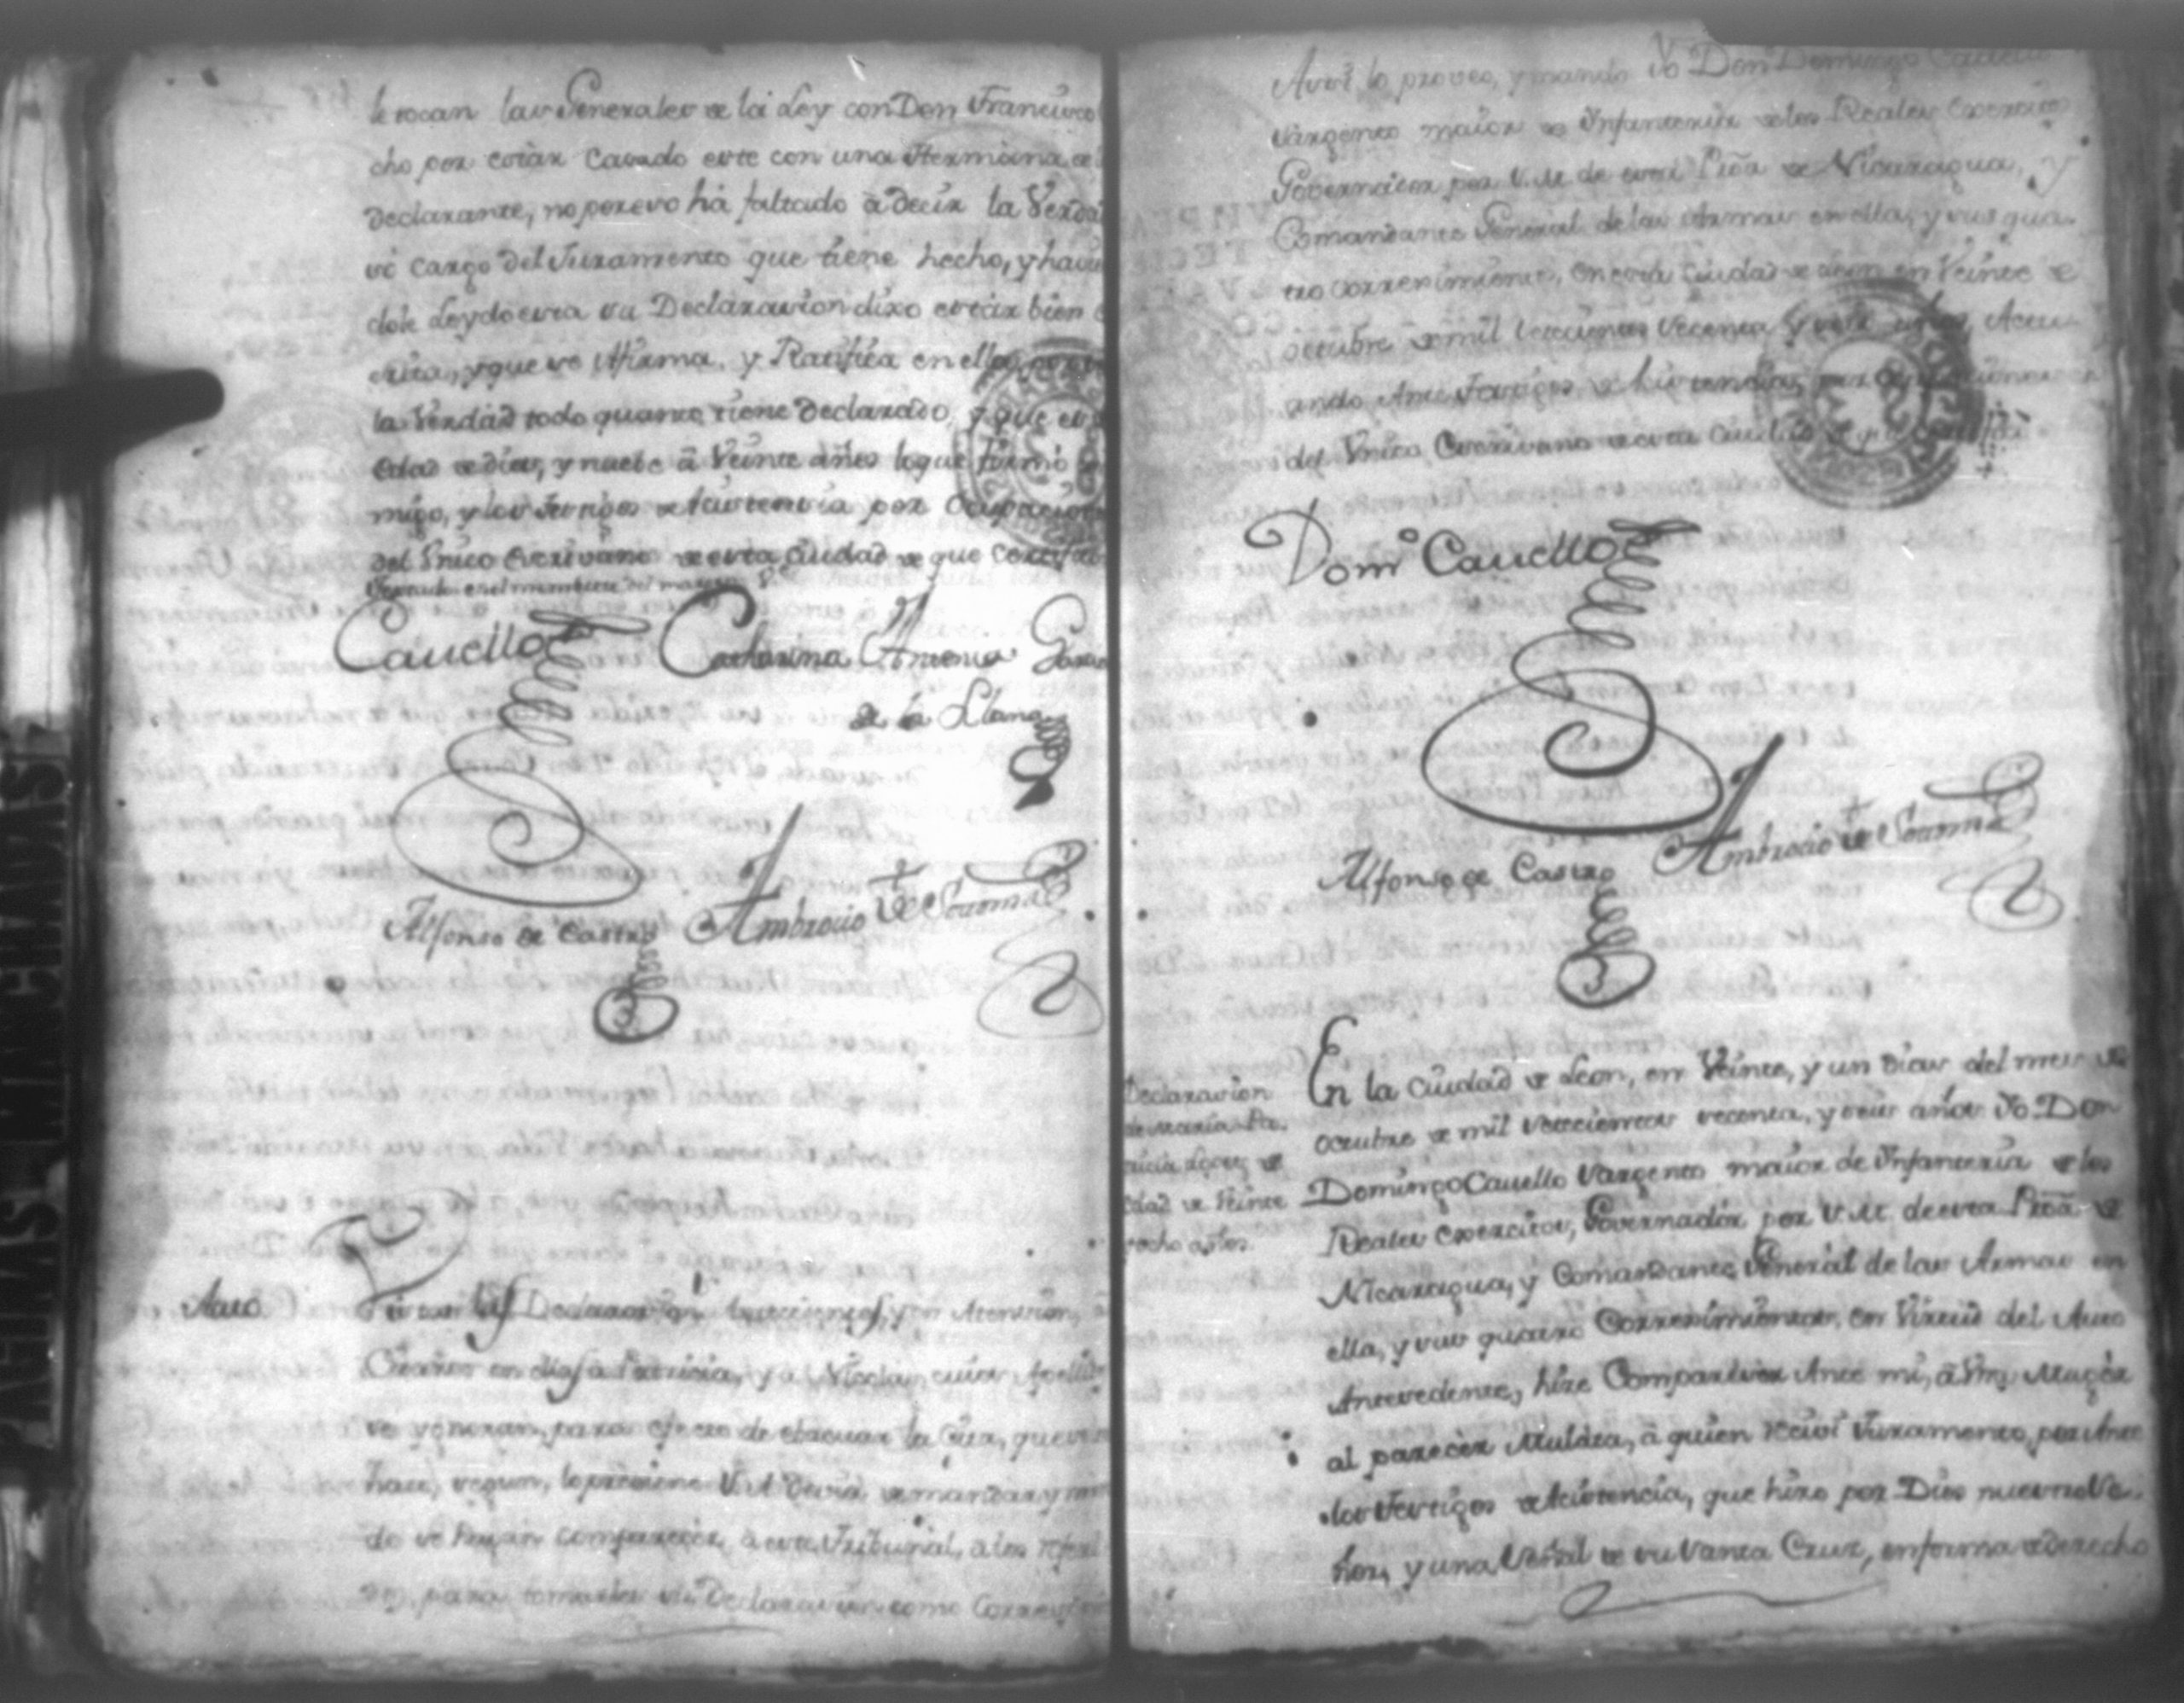 le tocan las Generales de la Ley con Don Francisco
cho por estar Casado este con una Hermana de
Declarante, no por eso há faltado â decir la Verda
so cargo del Juramento que tiene hecho, y havien
dole Leydo esta su Declarasion dixo estar bien
crita, y que se Afirma, y Ratifica en ella
la Verdad todo quanto tiene declarado, y que es
Edad de diez, y nuebe â Veinte años lo que firmó
migo, y los Testigos de Acistencia por Ocupacion
del Vnico Escrivano de esta Ciudad de que Certifico
Cauello
Catharina Antonia
de la Llana
Alfonso de Castro
Ambrocio de
Auto
Declarasion
Ciudad a Patricia, y a Nicolasa, cuios Apellido
se ygnoran, para efecto de ebacuar la Cita, que
hace, segun, lo previene
do se hagan comparecer â este Tribunal, a los refer
para tomarles su Declarasion como Corresp
Assi lo proveo, y mando Yo Don Domingo Cauello
Sargento maior de Infanteria de los Reales Exercitos
Governador por S. M. de esta Proã de Nicaragua, y
Comandante General de las Armas en ella, y sus qua
tro correximientos, en esta Ciudad de Leon en Veinte de
octubre de mil setecientos secenta y seis años Actu
ando Ante Testigos de Acistencia, por
del Vnico Escrivano de esta Ciudad
Domº Cauello
Alfonso de Castro
Ambrocio de
Declarasion
de Maria Pa
tricia Lopez de
Edad de Veinte
y ocho años.
En la Ciudad de Leon, en Veinte, y un dias del mes de
octubre de mil setecientos secenta, y seis años Yo Don
Domingo Cauello Sargento maior de Infanteria de los
Reales Exercitos, Governador por S. M. de esta Proã de
Nicaragua, y Comandante General de las Armas en
ella, y sus quatro Correximientos, en Virtud del Auto
Antesedente, hize Comparecer Ante mi, â Vna Muger
al parecer Mulata, â quien recivi Juramento, por Ante
los Testigos de Acistencia, que hizo por Dios nuestro Se
ñor, y una Señal de su Santa Cruz, en forma de derecho